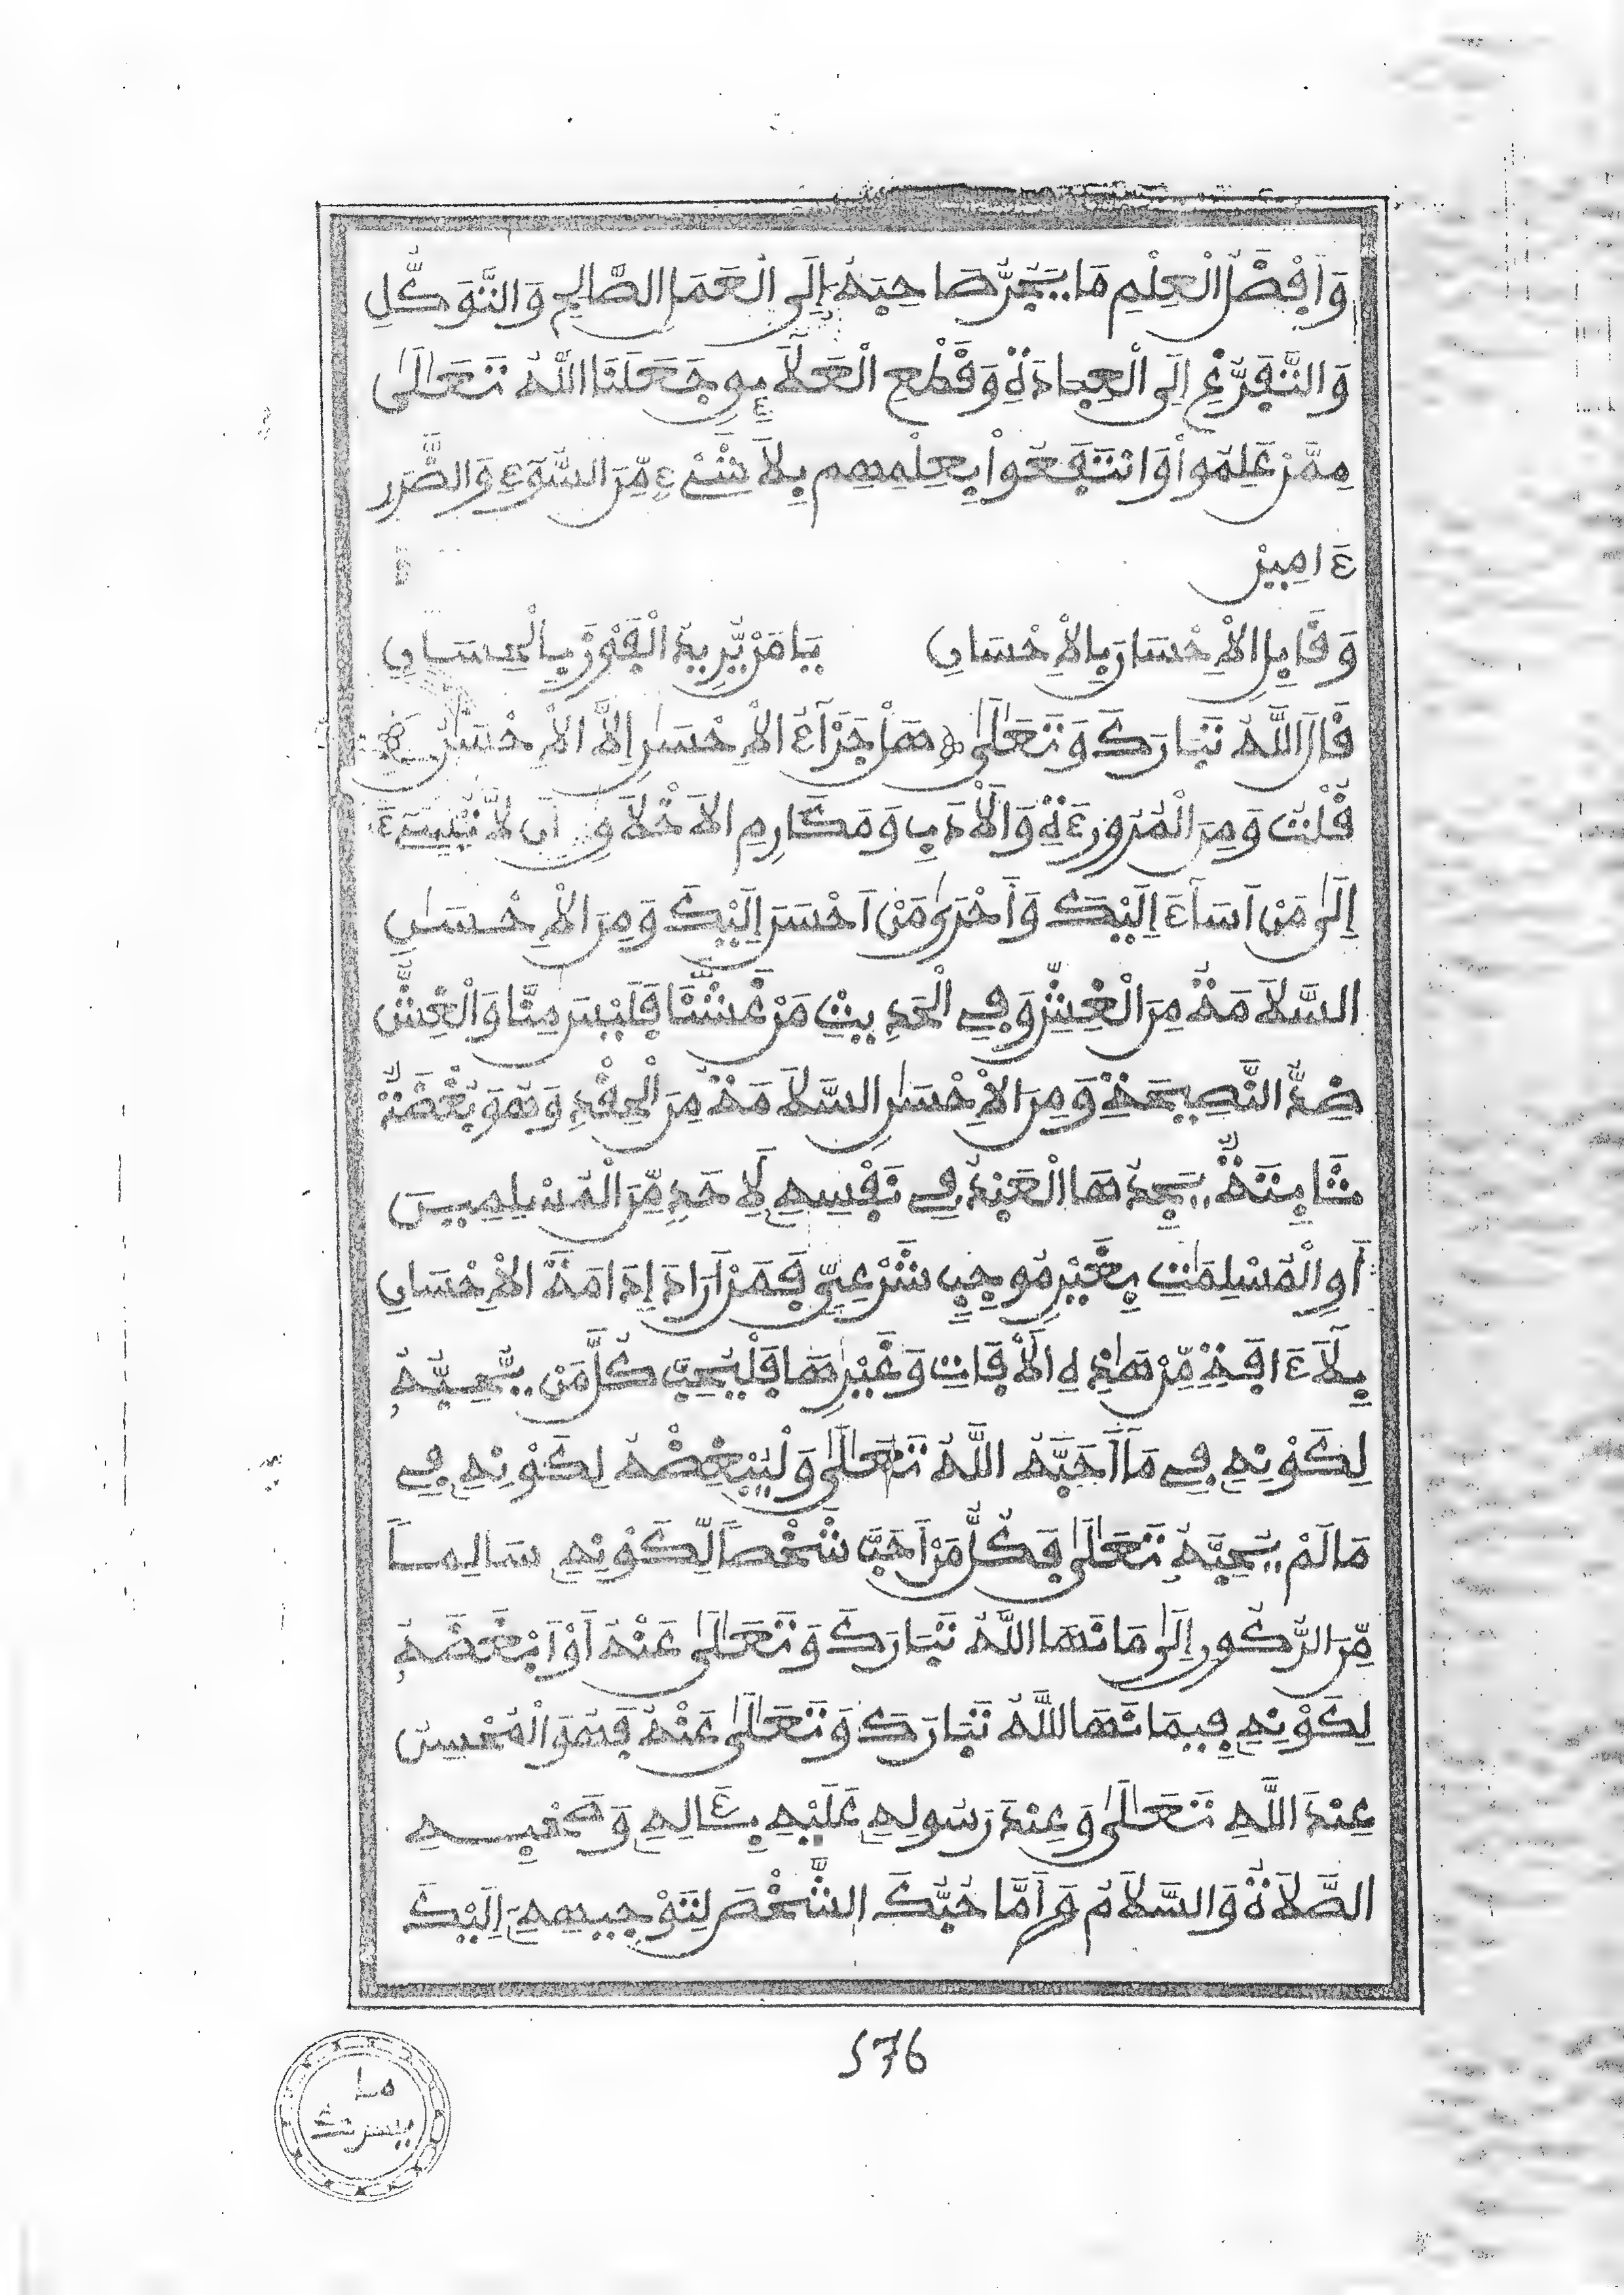 وَأَفْضَلُ الْعِلْمِ مَا يَجُرُّ صَاحِبَهُ إِلَى الْعَمَلِ الصَّالِحِ وَالتَّوَكُّلِ
وَالتَّفَرُّغِ إِلَى الْعِبَادَةِ وَقَطْعِ الْعَلَآئِقِ جَعَلَنَا اللَّهُ تَعَالَىٰ
مِمَّنْ عَلِمُواْ وَانْتَفَعُواْ بِعِلْمِهِم بِلَا شَيْءٍ مِّنَ السُّوٓءِ وَالضَّرَرِ
ءَامِين
وَقَابِلِ الْإِحْسَانَ بِالْإِحْسَانِ يَا مَنْ يُّرِيدُ الْفَوْزَ بِالْحِسَانِ
قَالَ اللَّهُ تَبَارَكَ وَتَعَالَىٰ هَلْ جَزَآءُ الْإِحْسَٰنِ إِلَّا الْإِحْسَٰنُ
قُلْتُ وَمِنَ الْمُرُورءَةِ وَالْأَدَبِ وَمَكَارِمِ الْأَخْلَاقِ أَن لَّا تُسِيٓءَ
إِلَىٰ مَنْ أَسَآءَ إِلَيْكَ وَأَحْرَىٰ مَنْ أَحْسَنَ إِلَيْكَ وَمِنَ الْإِحْسَٰنِ
السَّلَامَةُ مِنَ الْغِشِّ وَفِي الْحَدِيثِ مَنْ غَشَّنَا فَلَيْسَ مِنَّا وَالْغِشُّ
ضِدُّ النَّصِيحَةِ وَمِنَ الْإِحْسَٰنِ السَّلَامَةُ مِنَ الْحِقْدِ وَهُوَ بُغْضَةٌ
ثَابِتَةٌ يَجِدُهَا الْعَبْدُ فِي نَفْسِهِ لِأَحَدٍ مِّنَ الْمُسْلِمِينَ
أَوِ الْمُسْلِمَٰتِ بِغَيْرِ مُوجِبٍ شَرْعِيٍّ فَمَنْ أَرَادَ إِدَامَةَ الْإِحْسَانِ
بِلَا ءَافَةٍ مِّنْ هَٰذِهِ الْأَفَاتِ وَغَيْرِهَا فَلْيُحِبَّ كُلَّ مَن يُّحِبُّهُ
لِكَوْنِهِ فِي مَآ أَحَبَّهُ اللَّهُ تَعَالَىٰ وَلْيُبْغِضْهُ لِكَوْنِهِ فِي
مَا لَمْ يُحِبَّهُ تَعَالَىٰ فَكُلُّ مَنْ أَحَبَّ شَخْصًا لِّكَوْنِهِ سَالِمًا
مِّنَ الرُّكُونِ إِلَىٰ مَا نَهَا اللَّهُ تَبَارَكَ وَتَعَالَىٰ عَنْهُ أَوْ أَبْغَضَهُ
لِكَوْنِهِ فِيمَا نَهَا اللَّهُ تَبَارَكَ وَتَعَالَىٰ عَنْهُ فَهُوَ الْمُحْسِنُ
عِنْدَ اللَّهِ تَعَالَىٰ وَعِنْدَ رَسُولِهِ عَلَيْهِ بِـَٔالِهِ وَصَحْبِهِ
الصَّلَاةُ وَالسَّلَامُ وَأَمَّا حُبُّكَ الشَّخْصَ لِتَوْجِيهِهِ إِلَيْكَ
576
ما
يسرك